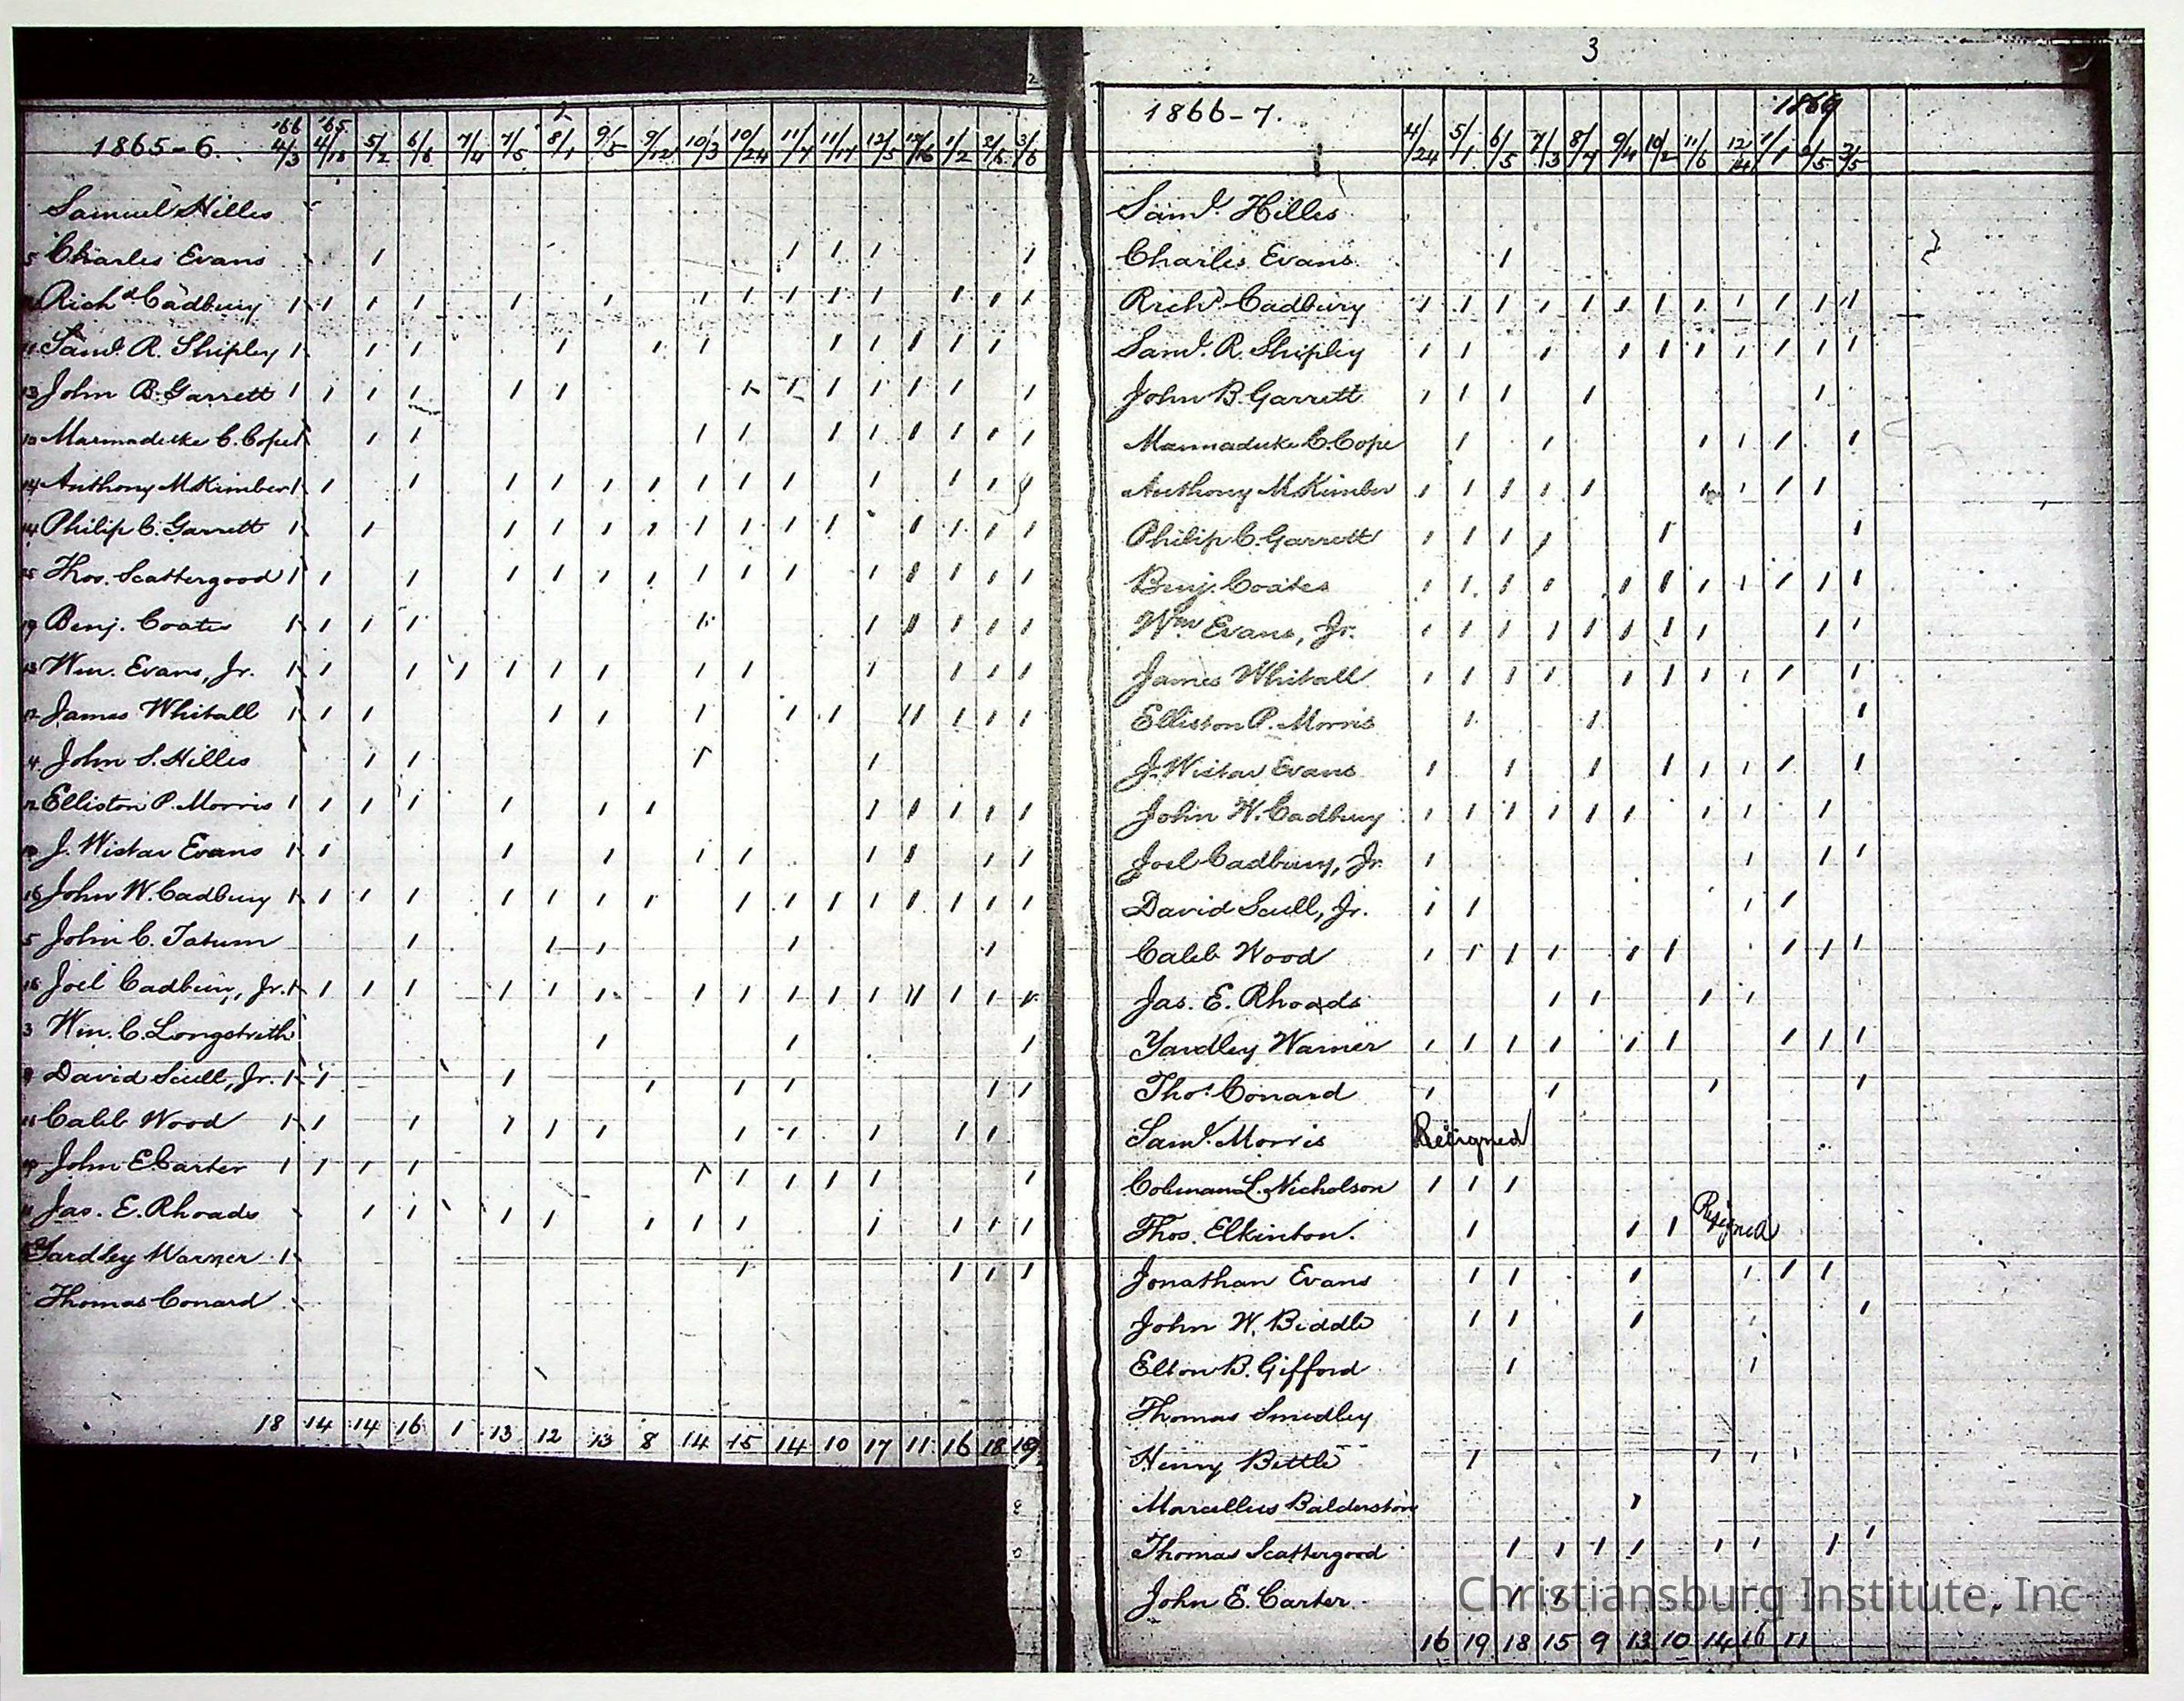 2
1865-6. '66 4/3 '65 4/18 5/2 6/6 7/4 7/5 8/1 9/5 9/12 10/3 10/24 11/7 11/14 12/5 12/16 1/2 2/6 3/6
Samuel Hilles
5 Charles Evans
Richd Cadbury
11 Saml. R. Shipley
13 John B. Garrett
Marmaduke C. Cope
14 Anthony M. Kimber
14 Philip C. Garrett
Thos. Scattergood
Benj. Coates
13 Wm. Evans, Jr.
12 James Whitall
4 John S. Hilles
12 Elliston P. Morris
10 J. Wistar Evans
16 John W. Cadbury
5 John C. Tatum
16 Joel Cadbury, Jr.
3 Wm. C. Longstreth
David Scull, Jr.
11 Caleb Wood
John E. Carter
11 Jas. E. Rhoads
Yardley Warner
Thomas Conard
18 14 14 16 1 13 12 13 8 14 15 14 10 17 11 16 18 19
3
1869
1866-7. 4/24 5/1 6/5 7/3 8/7 9/4 10/2 11/6 12/4 1/1 2/5 3/5
Saml. Hilles
Charles Evans
Richd Cadbury
Saml. R. Shipley
John B. Garrett
Marmaduke C. Cope
Anthony M. Kimber
Philip C. Garrett
Benj. Coates
Wm Evans, Jr.
James Whitall
Elliston P. Morris
J. Wistar Evans
John W. Cadbury
Joel Cadbury, Jr.
David Scull, Jr.
Caleb Wood
Jas. E. Rhoads
Yardley Warner
Thos. Conard
Saml. Morris Resigned
Colman L. Nicholson
Thos. Elkinton. Resigned
Jonathan Evans
John W. Biddle
Elton B. Gifford
Thomas Smedley
Henry Bettle
Marcellus Balderston
Thomas Scattergood
John E. Carter
16 19 18 15 9 13 10 14 16 11
Christiansburg Institute, Inc